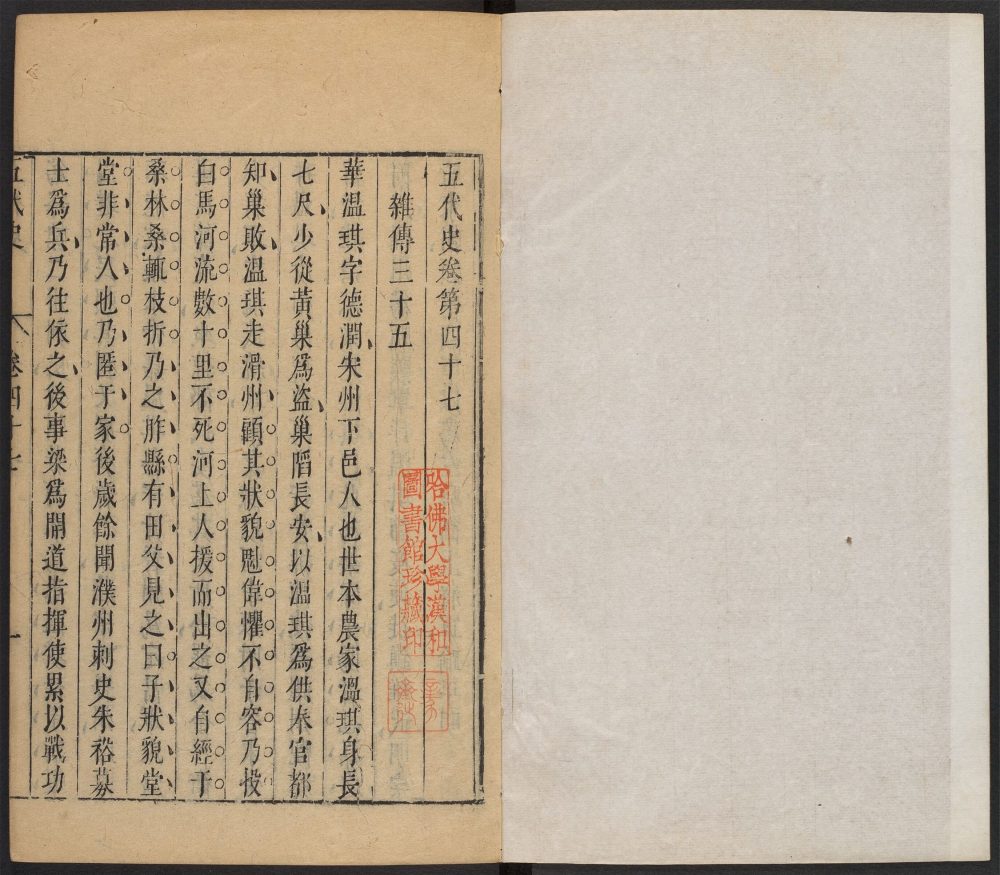 五代史卷第四十七
雜傳三十五
華溫琪字德潤宋州下邑人也世本農家溫琪身長
七尺少從黃巢爲盜巢陷長安以溫琪爲供奉官都
知巢敗溫琪走滑州顧其狀貌魁偉懼不自容乃投
白馬河流數十里不死河上人援而出之又自經于
桑林桑輒枝折乃之胙縣有田父見之曰子狀貌堂
堂非常人也乃匿于家後歲餘聞濮州刺史朱裕募
士爲兵乃往依之後事梁爲開道指揮使累以戰功
五代史
卷四十七
一
哈佛大學漢和
圖書館珍藏印